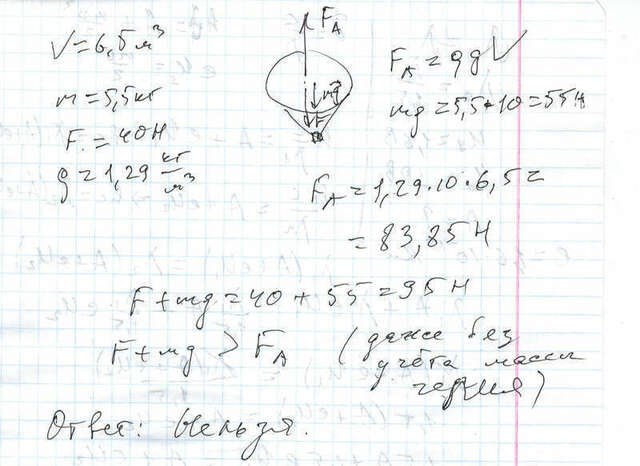 V = 6,5 м³
m = 5,5 кг
F = 40 Н
ρ = 1,29 кг/м³
F_A
mg
F
F_A = ρgV
mg = 5,5 * 10 = 55 Н
F_A = 1,29 · 10 · 6,5 =
= 83,85 Н
F + mg = 40 + 55 = 95 Н
F + mg > F_A (даже без
учёта массы
гелия)
Ответ: Нельзя.